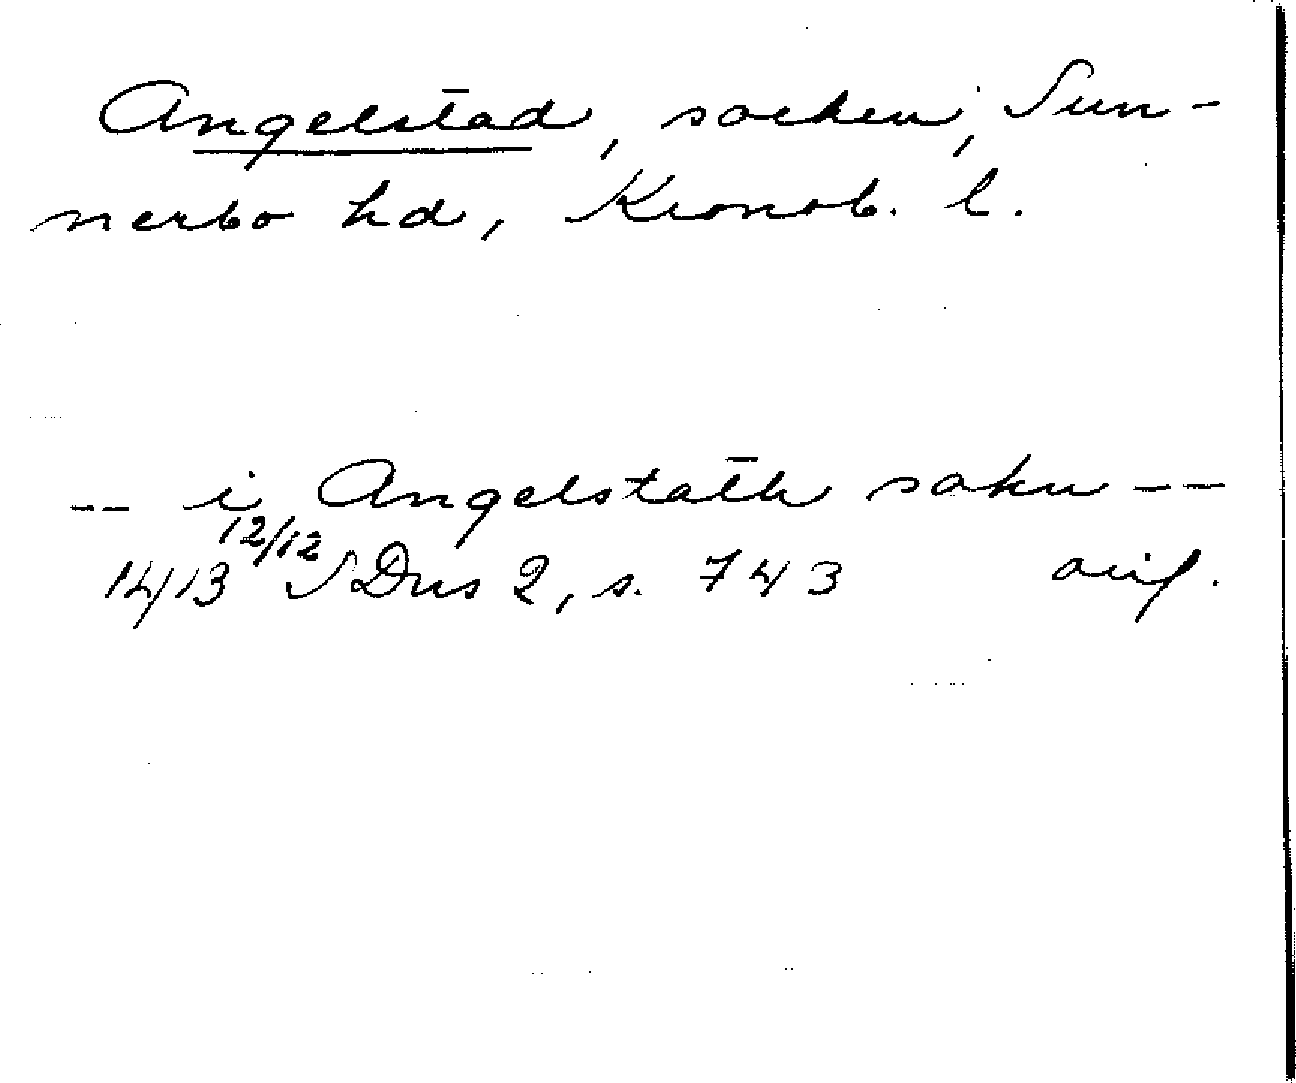 Angelstad, socken, Sun-
nerbo hd, Kronob. l.
-- i Angelstath sokn --
1413 12/12 SDns 2, s. 743 avskr.